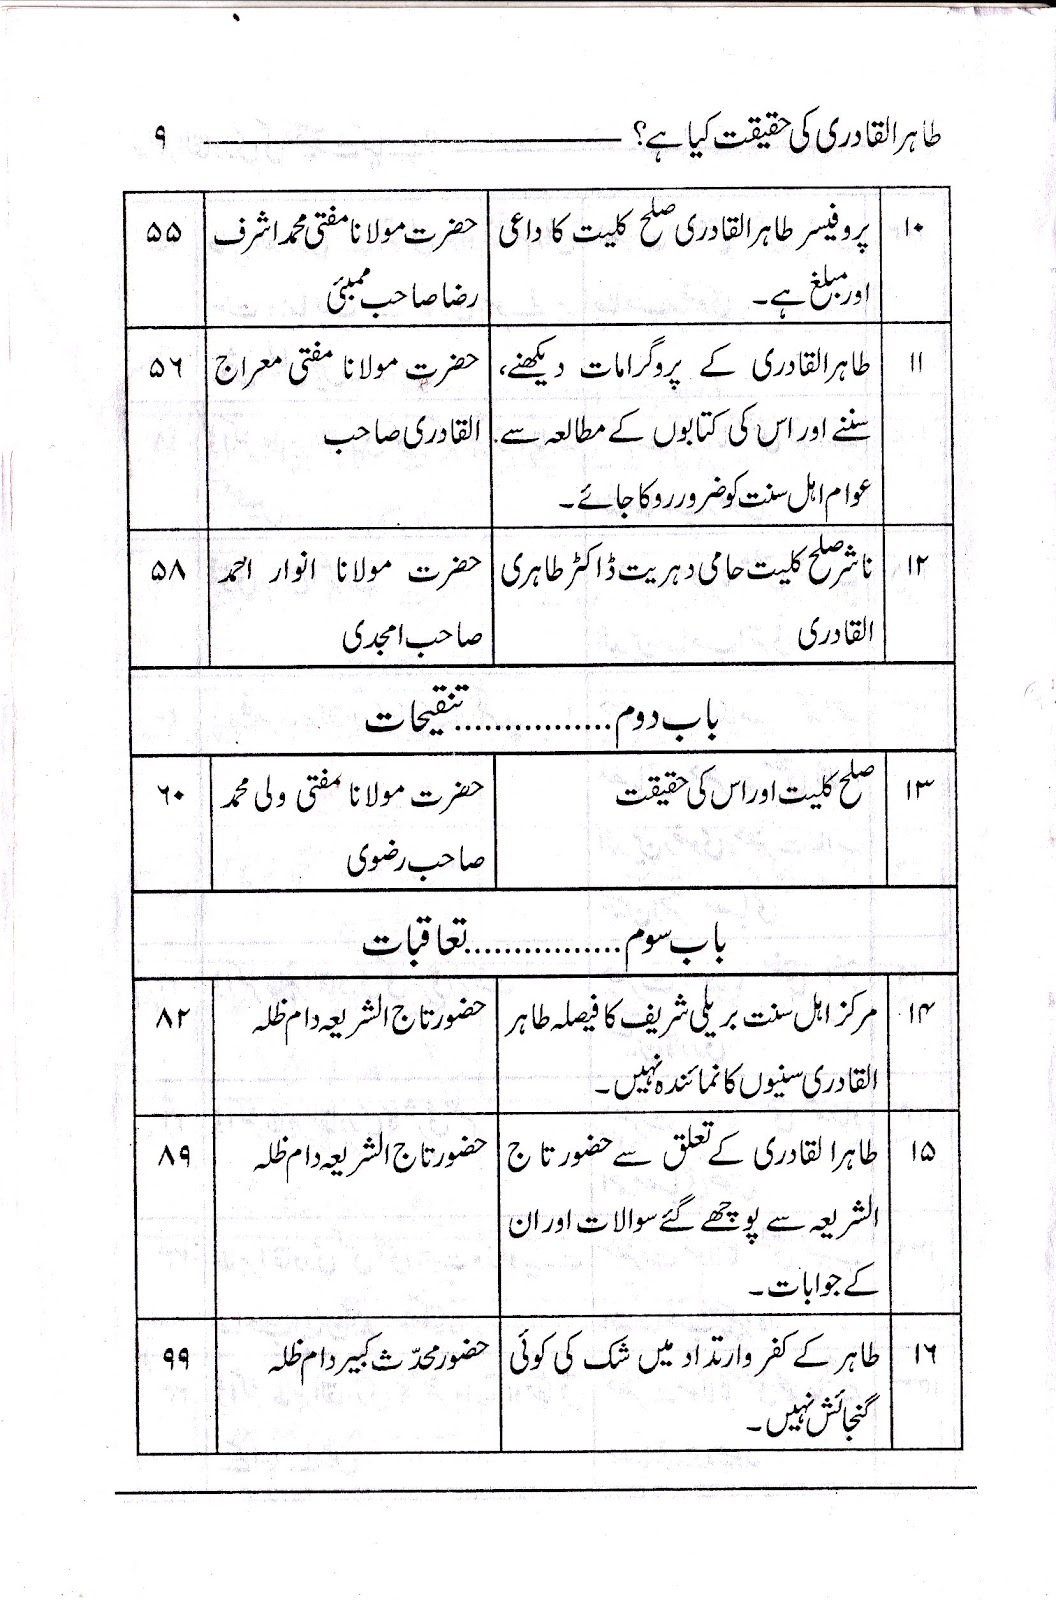 طاہر القادری کی حقیقت کیا ہے؟ ۹
۱۰ پروفیسر طاہر القادری صلح کلیت کا داعی حضرت مولانا مفتی محمد اشرف ۵۵
اور مبلغ ہے۔ رضا صاحب ممبئی
۱۱ طاہر القادری کے پروگرامات دیکھنے، حضرت مولانا مفتی معراج ۵۶
سننے اور اس کی کتابوں کے مطالعہ سے القادری صاحب
عوام اہل سنت کو ضرور روکا جائے۔
۱۲ ناشر صلح کلیت حامی دہریت ڈاکٹر طاہری حضرت مولانا انوار احمد ۵۸
القادری صاحب امجدی
باب دوم................تنقیحات
۱۳ صلح کلیت اور اس کی حقیقت حضرت مولانا مفتی ولی محمد ۶۰
صاحب رضوی
باب سوم................تعاقبات
۱۴ مرکز اہل سنت بریلی شریف کا فیصلہ طاہر حضور تاج الشریعہ دام ظلہ ۸۲
القادری سنیوں کا نمائندہ نہیں۔
۱۵ طاہر القادری کے تعلق سے حضور تاج حضور تاج الشریعہ دام ظلہ ۸۹
الشریعہ سے پوچھے گئے سوالات اور ان
کے جوابات۔
۱۶ طاہر کے کفر وارتداد میں شک کی کوئی حضور محدّث کبیر دام ظلہ ۹۹
گنجائش نہیں۔